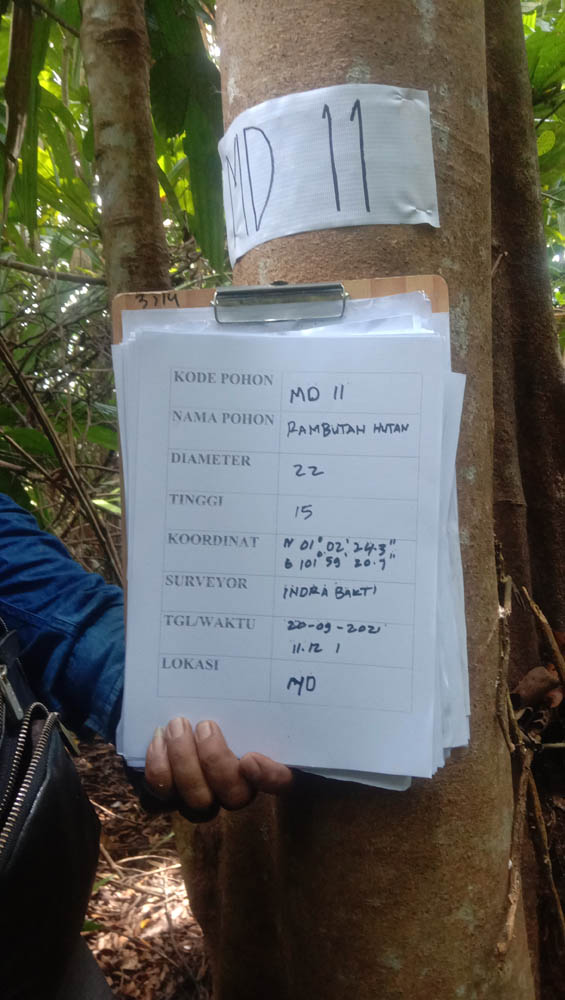 MD 11
3314
KODE POHON MD 11
NAMA POHON RAMBUTAN HUTAN
DIAMETER 22
TINGGI 15
KOORDINAT N 01° 02' 24.3"
E 101° 59' 20.7"
SURVEYOR INDRA BAKTI
TGL/WAKTU 20-09-2021
11.12
LOKASI MD